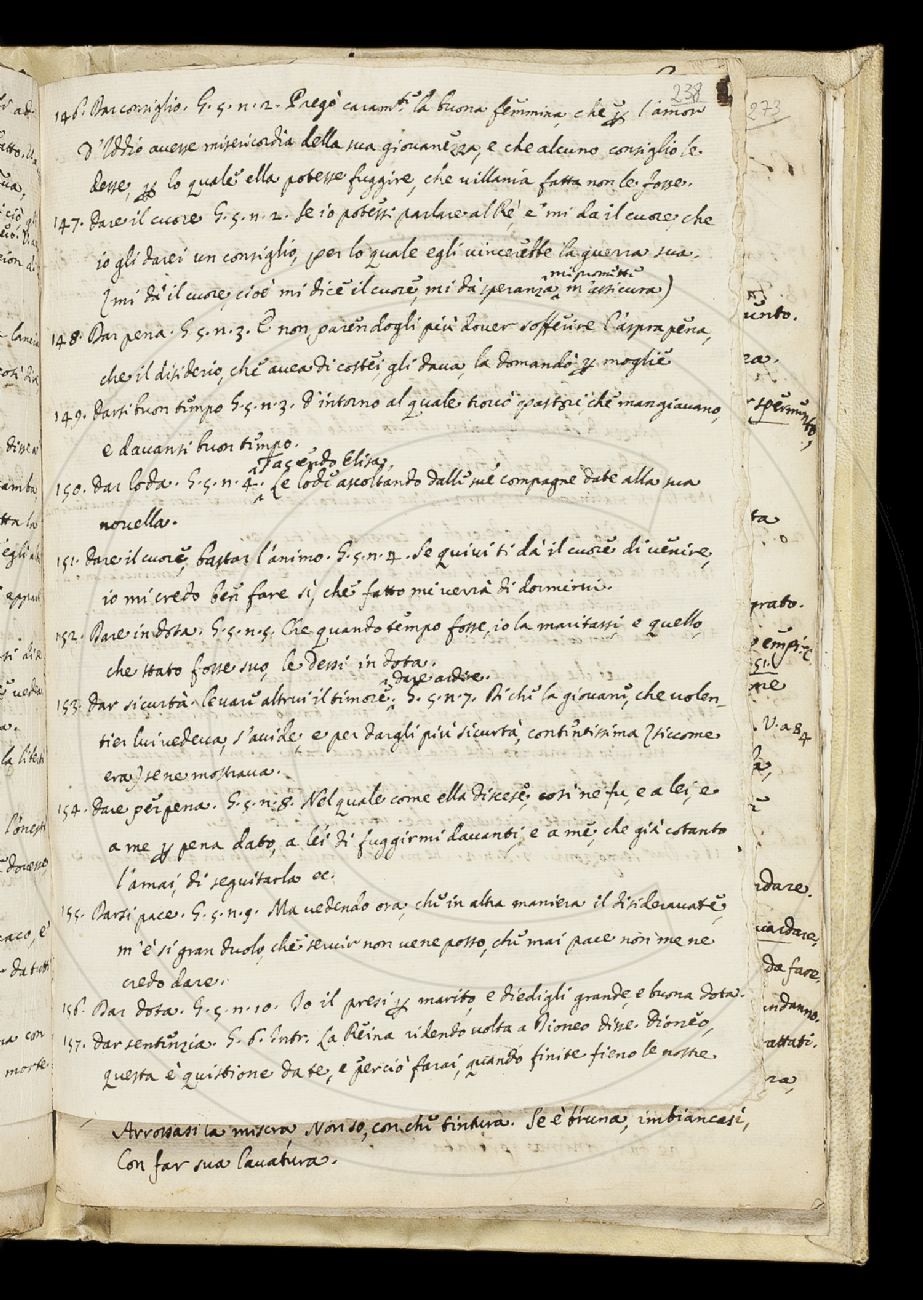 238
273
146. Dar consiglio. G. 5. n. 2. Pregò caramte la buona femmina, che ꝑ l'amor
d'Iddio avesse misericordia della sua giovanezza, e che alcuno consiglio le
desse, ꝑ lo quale ella potesse fuggire, che villania fatta non le fosse.
147. Dare il cuore G. 5. n. 2. Se io potessi parlare al Rè, e' mi da il cuore, che
io gli darei un consiglio, per lo quale egli vincerebbe la guerra sua.
mi prometto
(mi dà il cuore, cioè mi dice il cuore, mi dà speranza, m'assicura)
148. Dar pena. G. 5. n. 3. E non parendogli più dover sofferire l'aspra pena,
che il disiderio, che avea di costei, gli dava, la domandò ꝑ moglie
149. Darsi buon tempo G. 5. n. 3. D'intorno al quale trovò pastori che mangiavano,
e davansi buon tempo.
Tacendo Elisa,
150. Dar loda. G. 5. n. 4. Le lode ascoltando dalle sue compagne date alla sua
novella.
151. Dare il cuore, bastar l'animo. G. 5. n. 4. Se quivi ti dà il cuore di venire,
io mi credo ben fare sì, che fatto mi verrà di dormirvi.
152. Dare in dota. G. 5. n. 5. Che quando tempo fosse, io la maritassi, e quello,
che stato fosse suo, le dessi in dota.
dare ardire.
153. Dar sicurtà. levare altrui il timore, G. 5. n. 7. Di che la giovane, che volen-
tier lui vedeva, s'avide, e per dargli più sicurtà, contentissima (siccome
era) se ne mostrava.
154. Dare per pena. G. 5. n. 8. Nel quale come ella discese, così ne fu, e a lei, e
a me ꝑ pena dato, a lei di fuggirmi davanti, e a me, che già cotanto
l'amai, di seguitarla ec.
155. Darsi pace. G. 5. n. 9. Ma vedendo ora, che in altra maniera il disideravate,
m'è sì gran duolo, che servir non ve ne posso, che mai pace non me ne
credo dare.
156. Dar dota. G. 5. n. 10. Io il presi ꝑ marito, e diedigli grande, e buona dota.
157. Dar sentenzia. G. 6. Intr. La Reina ridendo volta a Dioneo disse. Dioneo,
questa è quistione da te, e perciò farai, quando finite fieno le nostre
Arrossasi la misera, Non so, con che tintura. Se è bruna, imbiancasi,
Con far sua lavatura.